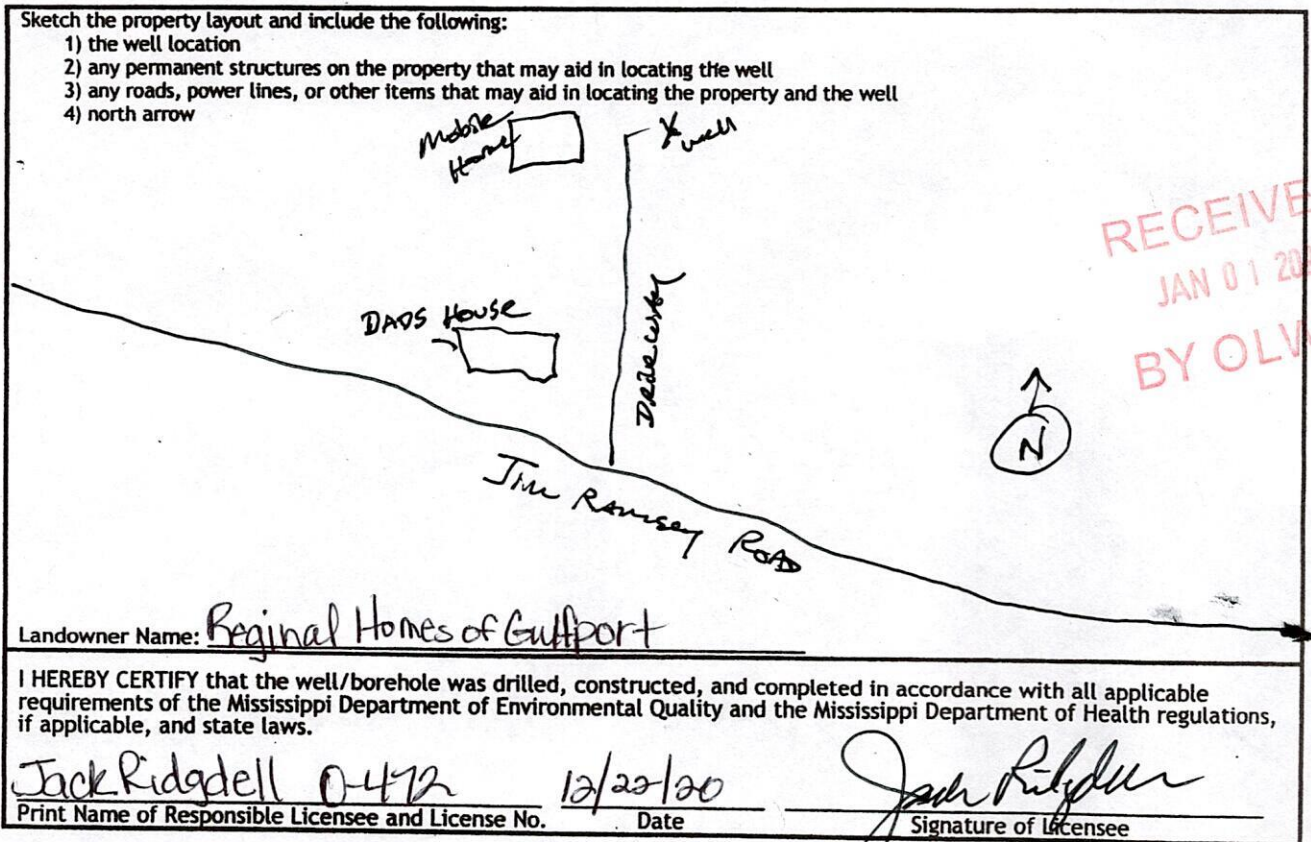 Sketch the property layout and include the following:
1) the well location
2) any permanent structures on the property that may aid in locating the well
3) any roads, power lines, or other items that may aid in locating the property and the well
4) north arrow
Mobile
Home
well
RECEIVE
JAN 01 20
BY OLW
DADS House
N
Jim Ramsey Road
Landowner Name: Reginal Homes of Gulfport
I HEREBY CERTIFY that the well/borehole was drilled, constructed, and completed in accordance with all applicable
requirements of the Mississippi Department of Environmental Quality and the Mississippi Department of Health regulations,
if applicable, and state laws.
Jack Ridgdell 0-472 12/22/20 Jack Ridgdell
Print Name of Responsible Licensee and License No. Date Signature of Licensee